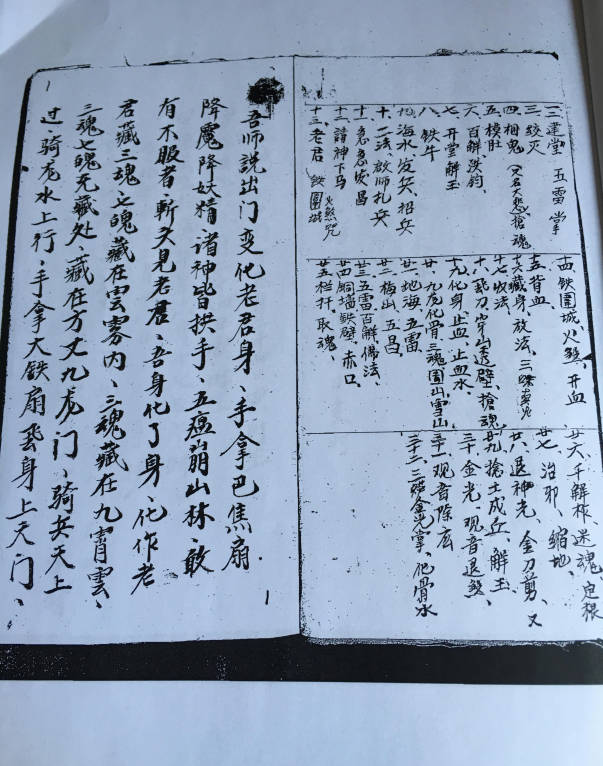 一二建堂 五雷掌
三絞灭
四相鬼 又名人愁搶魂
五模肚
六百解決鈎、
七开堂解玉
八鉄牛
九海水发兵、招兵
十二法啟师扎兵
十一急急收昌
十二請神下马
十三老君 鉄圍城 火煞咒
十四鉄圍城、火煞、开血、
十五背血
十六藏身、放法、
十七收法
十八裁刀、穿山透壁、搶魂
十九化身止血、止血水、
廿、九龙化骨三魂圍山、雪山
廿一地海、五雷
廿二梅山、五昌
廿三五雷百解佛法、
廿四銅墻鉄壁、赤口、
廿五栏杆、取魂、
廿六千解 迷魂 定根
廿七、治邪、縮地、
廿八、退神光、金刀剪、又
廿九捻土成丘、解玉、
三十金光、观音退煞
三十一、观音除
三十二、金光掌、化骨水
吾师説出门变化老君身、手拿巴焦扇
降魔降妖精、诸神皆拱手、五瘟崩山林、敢
有不服者、斬头見老君、吾身化了身、化作老
君藏三魂、七魄藏在雲雾内、三魂藏在九霄雲、
三魂七魄无藏处、藏在方丈九龙门、骑兵天上
过、骑龙水上行、手拿大鉄扇飛身上天门、
1
1